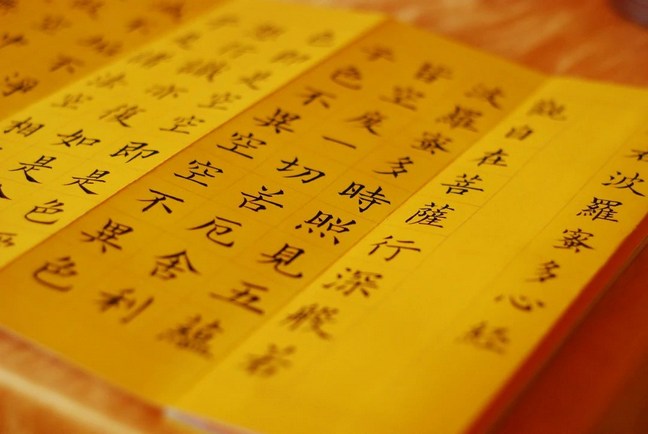 波羅蜜多心經
觀自在菩薩行深般若
波羅蜜多時照見五蘊
皆空度一切苦厄舍利
子色不異空空不異色
色即是空空即是色
想行識亦復如是
是諸法空相
不淨